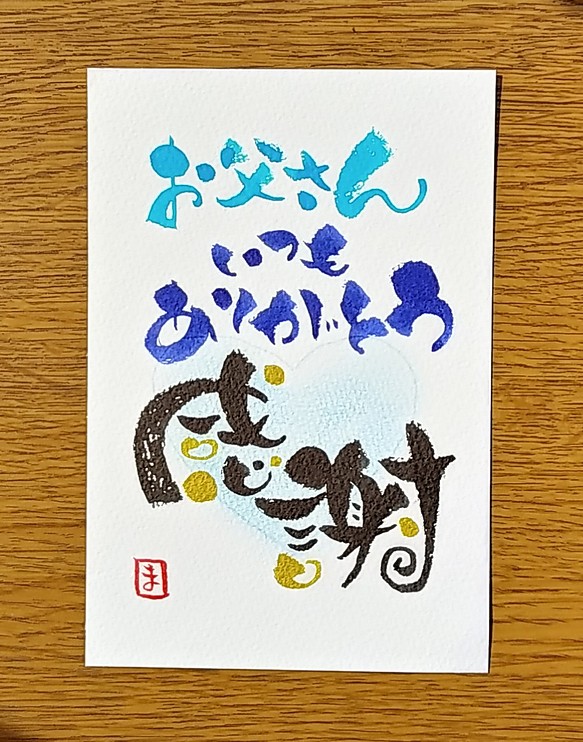 お父さん
いつも
ありがとう
感謝
ま